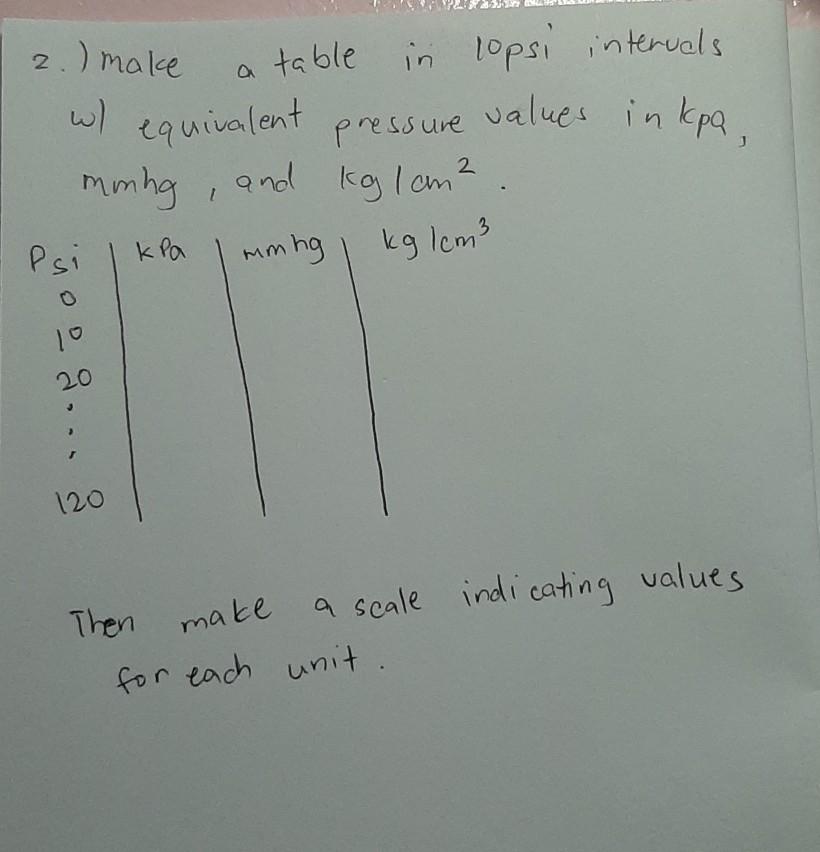 2.) make a table in 10psi intervals
w/ equivalent pressure values in kpa,
mmhg, and kg/cm².
Psi | kPa | mmhg | kg/cm³
0
10
20
.
.
.
120
Then make a scale indicating values
for each unit.